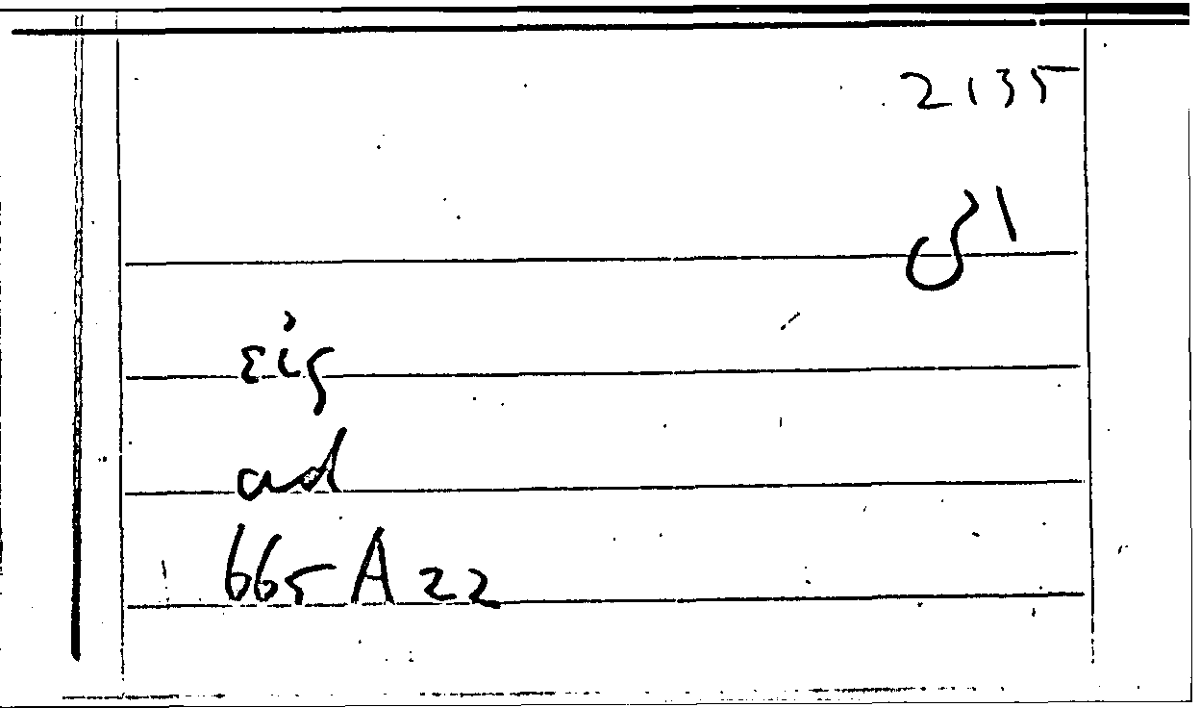 2135
εἰς
ad
665A22